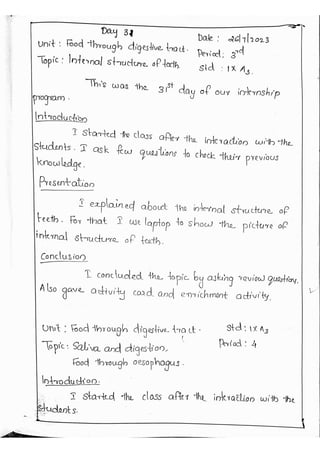 Day 31
Date : 26/7/2023
Unit : Food through digestive tract.
Period: 3rd
Topic : Internal structure of teeth
Std : IX A3.
This was the 31st day of our internship
program.
Introduction
I started the class after the interaction with the
students. I ask few questions to check their previous
knowledge.
Presentation
I explained about the internal structure of
teeth. For that I use laptop to show the picture of
internal structure of teeth.
Conclusion
I concluded the topic by asking review question.
Also gave activity card and enrichment activity.
Unit : Food through digestive tract.
Std : IX A3
Topic : Saliva and digestion,
Period : 4
Food through oesophagus.
Introduction.
I started the class after the interaction with the
students.